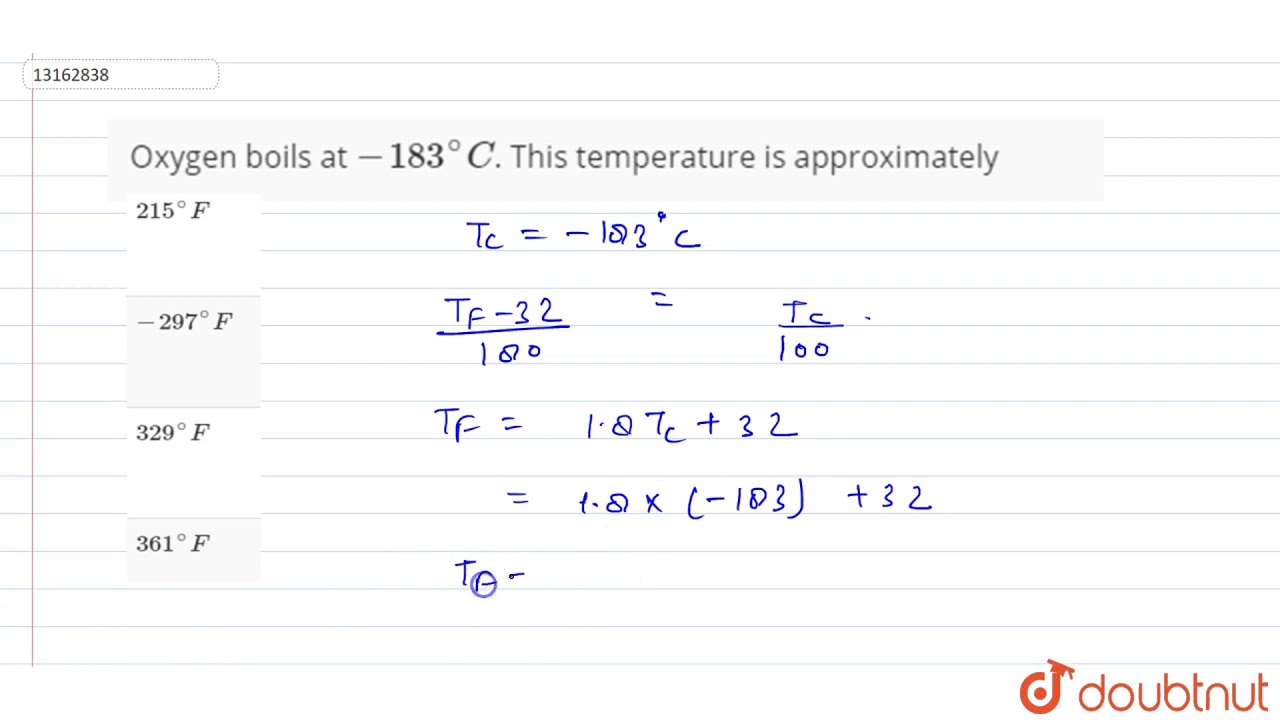 13162838
Oxygen boils at −183°C. This temperature is approximately
215°F
−297°F
329°F
361°F
Tc = −183°C
TF−32 / 180 = Tc / 100
TF = 1.8 Tc + 32
= 1.8 × (−183) + 32
TF =
doubtnut